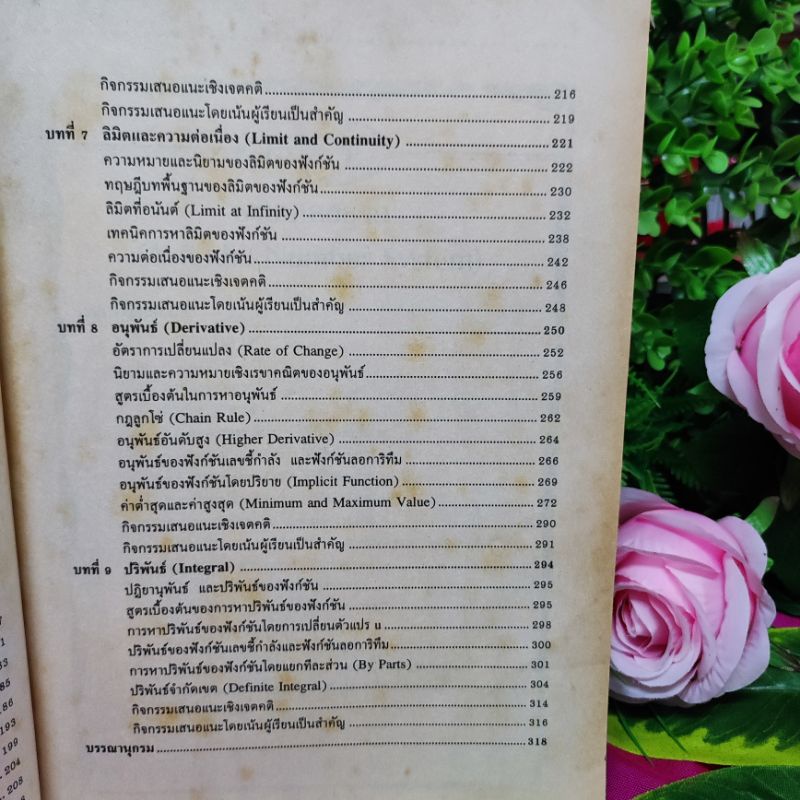 กิจกรรมเสนอแนะเชิงเจตคติ 216
กิจกรรมเสนอแนะโดยเน้นผู้เรียนเป็นสำคัญ 219
บทที่ 7 ลิมิตและความต่อเนื่อง (Limit and Continuity) 221
ความหมายและนิยามของลิมิตของฟังก์ชัน 222
ทฤษฎีบทพื้นฐานของลิมิตของฟังก์ชัน 230
ลิมิตที่อนันต์ (Limit at Infinity) 232
เทคนิคการหาลิมิตของฟังก์ชัน 238
ความต่อเนื่องของฟังก์ชัน 242
กิจกรรมเสนอแนะเชิงเจตคติ 246
กิจกรรมเสนอแนะโดยเน้นผู้เรียนเป็นสำคัญ 248
บทที่ 8 อนุพันธ์ (Derivative) 250
อัตราการเปลี่ยนแปลง (Rate of Change) 252
นิยามและความหมายเชิงเรขาคณิตของอนุพันธ์ 256
สูตรเบื้องต้นในการหาอนุพันธ์ 259
กฎลูกโซ่ (Chain Rule) 262
อนุพันธ์อันดับสูง (Higher Derivative) 264
อนุพันธ์ของฟังก์ชันเลขชี้กำลัง และฟังก์ชันลอการิทึม 266
อนุพันธ์ของฟังก์ชันโดยปริยาย (Implicit Function) 269
ค่าต่ำสุดและค่าสูงสุด (Minimum and Maximum Value) 272
กิจกรรมเสนอแนะเชิงเจตคติ 290
กิจกรรมเสนอแนะโดยเน้นผู้เรียนเป็นสำคัญ 291
บทที่ 9 ปริพันธ์ (Integral) 294
ปฏิยานุพันธ์ และปริพันธ์ของฟังก์ชัน 295
สูตรเบื้องต้นของการหาปริพันธ์ของฟังก์ชัน 295
การหาปริพันธ์ของฟังก์ชันโดยการเปลี่ยนตัวแปร u 298
ปริพันธ์ของฟังก์ชันเลขชี้กำลังและฟังก์ชันลอการิทึม 300
การหาปริพันธ์ของฟังก์ชันโดยแยกทีละส่วน (By Parts) 301
ปริพันธ์จำกัดเขต (Definite Integral) 304
กิจกรรมเสนอแนะเชิงเจตคติ 314
กิจกรรมเสนอแนะโดยเน้นผู้เรียนเป็นสำคัญ 316
บรรณานุกรม 318
85
186
193
199
204
208